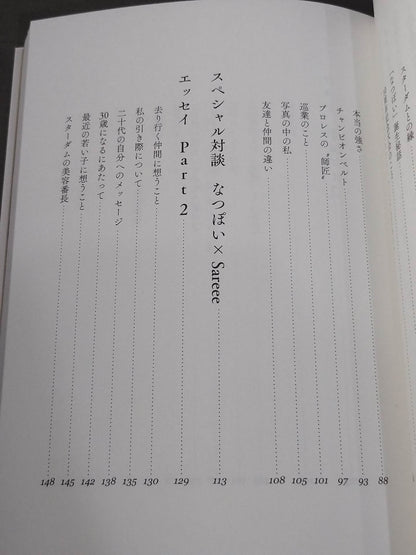 スターダムとの縁
本当の強さ 88
チャンピオンベルト 93
プロレスの〝師匠〟 97
巡業のこと 101
写真の中の私 105
友達と仲間の違い 108
スペシャル対談 なつぽい×Sareee 113
エッセイ Part 2 129
去り行く仲間に想うこと 130
私の引き際について 135
二十代の自分へのメッセージ 138
30歳になるにあたって 142
最近の若い子に想うこと 145
スターダムの美容番長 148